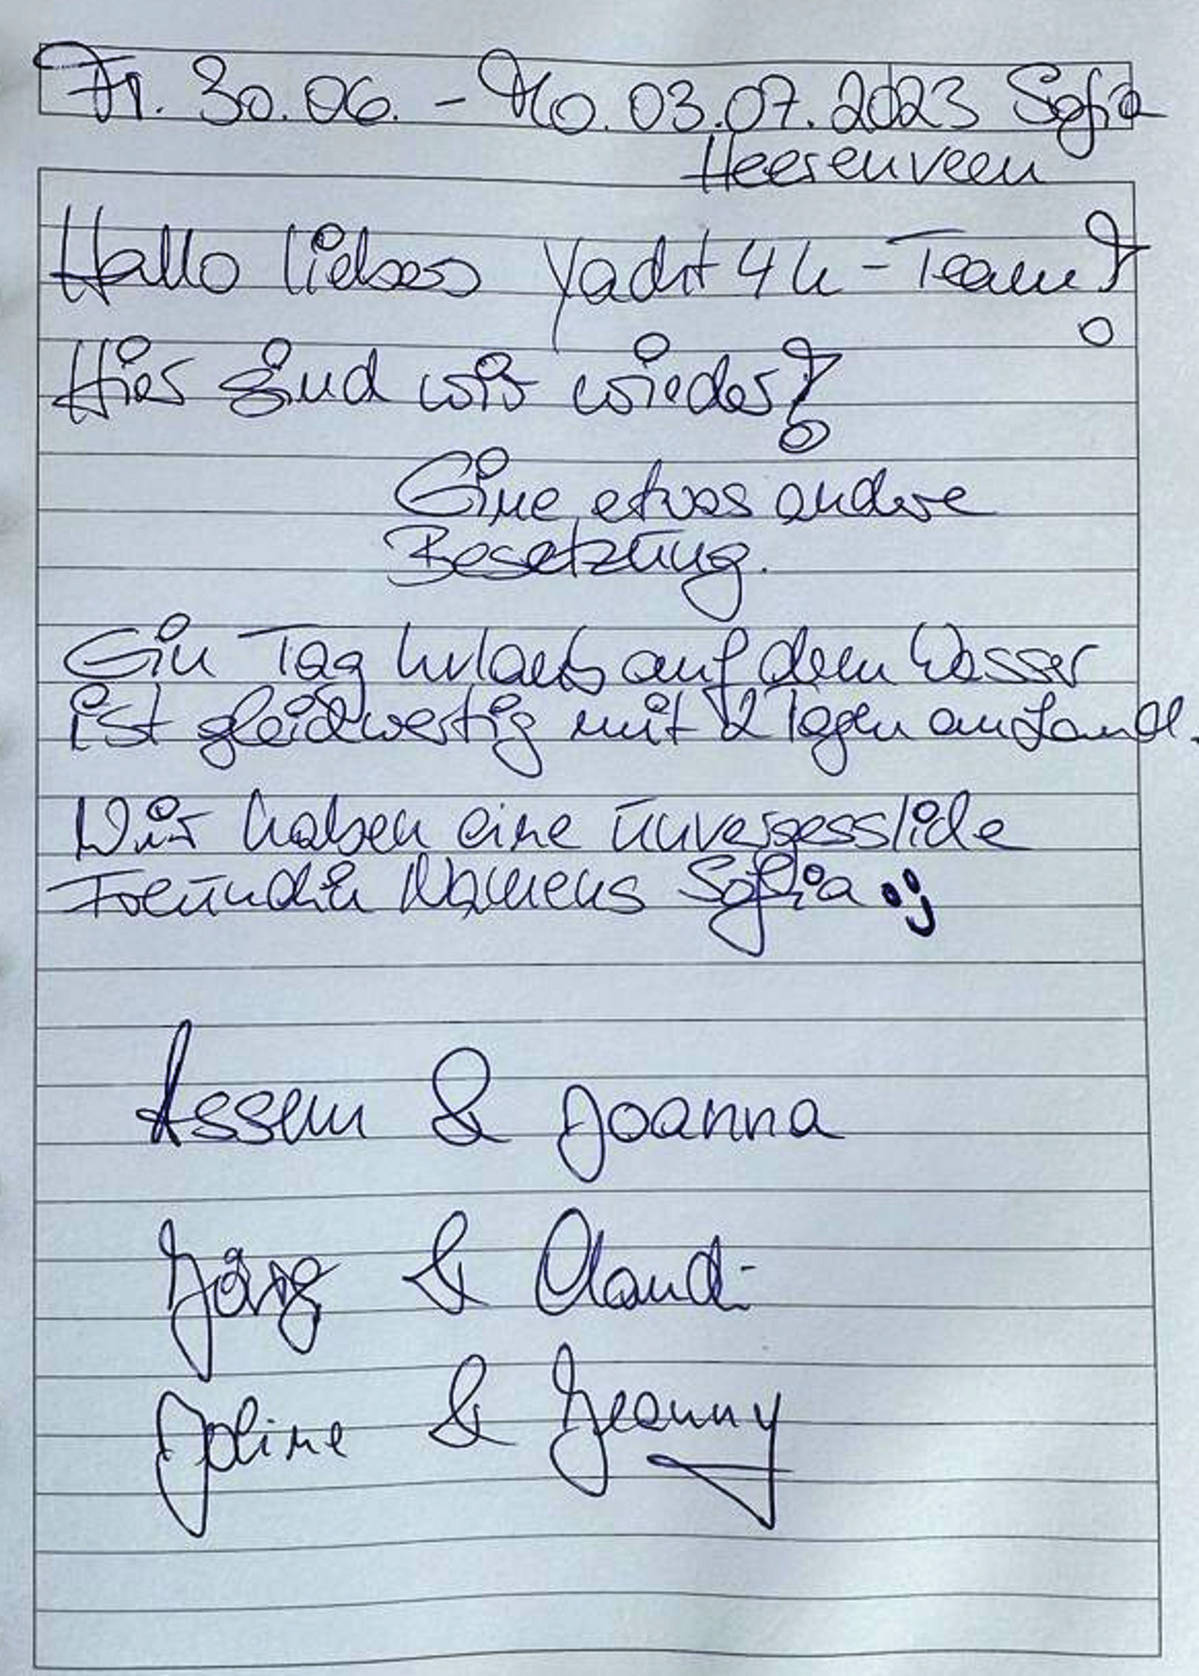 Fr. 30.06. - Mo. 03.07.2023 Sofia
Heerenveen
Hallo liebes Yacht 4 U - Team!
Hier sind wir wieder!
Eine etwas andere
Besetzung.
Ein Tag Urlaub auf dem Wasser
ist gleichwertig mit 12 Tagen an Land.
Wir haben eine unvergessliche
Freundin Namens Sofia :)
Assem & Joanna
Jörg & Claudi
Joline & Jeanny